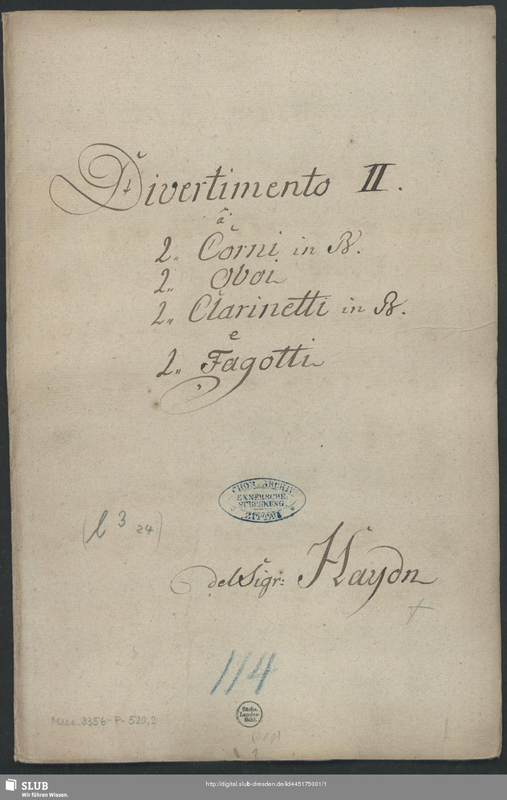 Divertimento II.
â
2„ Corni in B.
2„ Oboi
2„ Clarinetti in B.
e
2„ Fagotti
CHOR-ARCHIV
EXNERSCHE
SCHENKUNG
(l 3 24)
del Sigr: Haydn
114
Sächs.
Landes-
Bibl.
Mus. 3356-P-520,2
1
SLUB
Wir führen Wissen.
http://digital.slub-dresden.de/id445175001/1